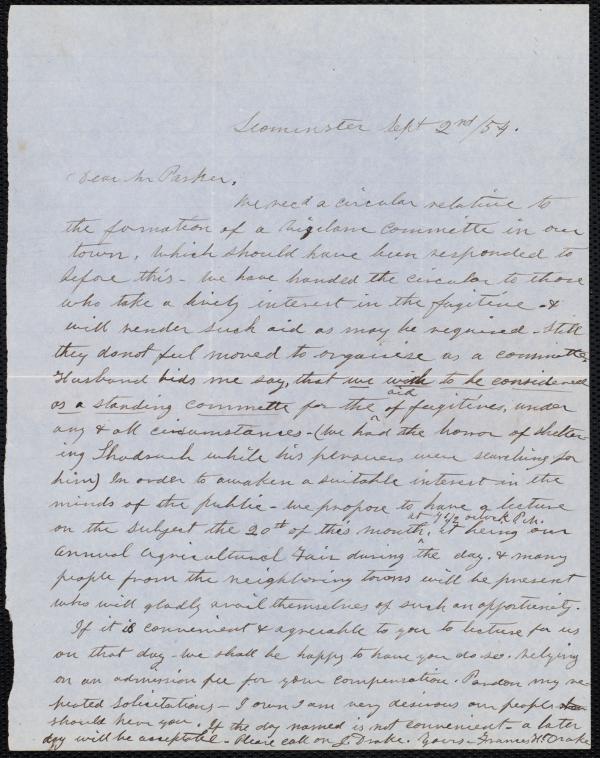 Leominster Sept 2nd/54.
Dear Mr Parker,
We recd a circular relative to
the formation of a Vigilanc committe in our
town, which should have been responded to
before this - We have handed the circular to those
who take a lively interest in the fugitive &
will render such aid as may be required - still
they do not feel moved to organise as a committe,
Husband bids me say, that we wish to be considered
as a standing committe for the aid of fugitives, under
any & all circumstances - (We had the honor of shelter
ing Shadrach while his persuers were searching for
him) In order to awaken a suitable interest in the
minds of the public - we propose to have a lecture
on the subject the 20th of this month, at 7 1/2 oclock P.M. it being our
Annual Agricultural Fair during the day. & many
people from the neighboring towns will be present
who will gladly avail themselves of such an opportunity.
If it is convenient & agreeable to you to lecture for us
on that day - we shall be happy to have you do so. relying
on an admission fee for your compensation. Pardon my re
peated solicitations - I own I am very desirous our people
should hear you. If the day named is not convenient - a later
day will be acceptable - Please call on J. Drake. Yours - Frances H. Drake